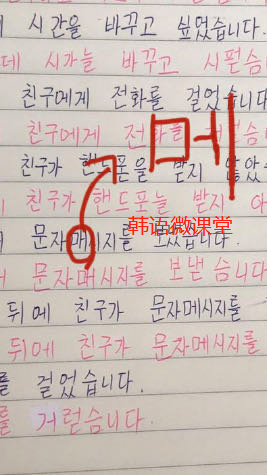 시간을 바꾸고 싶었습니다.
시가늘 바꾸고 시펃슴니다.
친구에게 전화를 걸었습니다
친구에게 슴니다
메
친구가 핸드폰을 받지 않았
친구가 핸드포늘 받지 아
韩语微课堂
문자메시지를 보냈습니다.
문자메시지를 보낻슴니다
뒤에 친구가 문자메시지를
뒤에 친구가 문자메시지를
를 걸었습니다.
를 거럳슴니다.